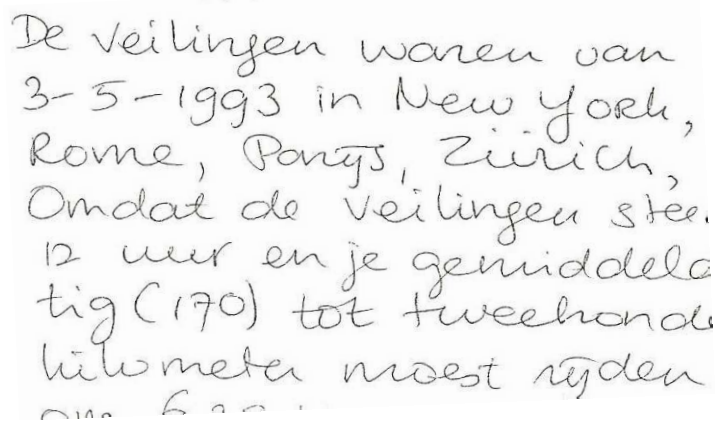 De veilingen waren van
3-5-1993 in New York,
Rome, Parijs, Zürich,
Omdat de veilingen stee.
12 uur en je gemiddeld
tig (170) tot tweehonde
kilometer moest rijden
om